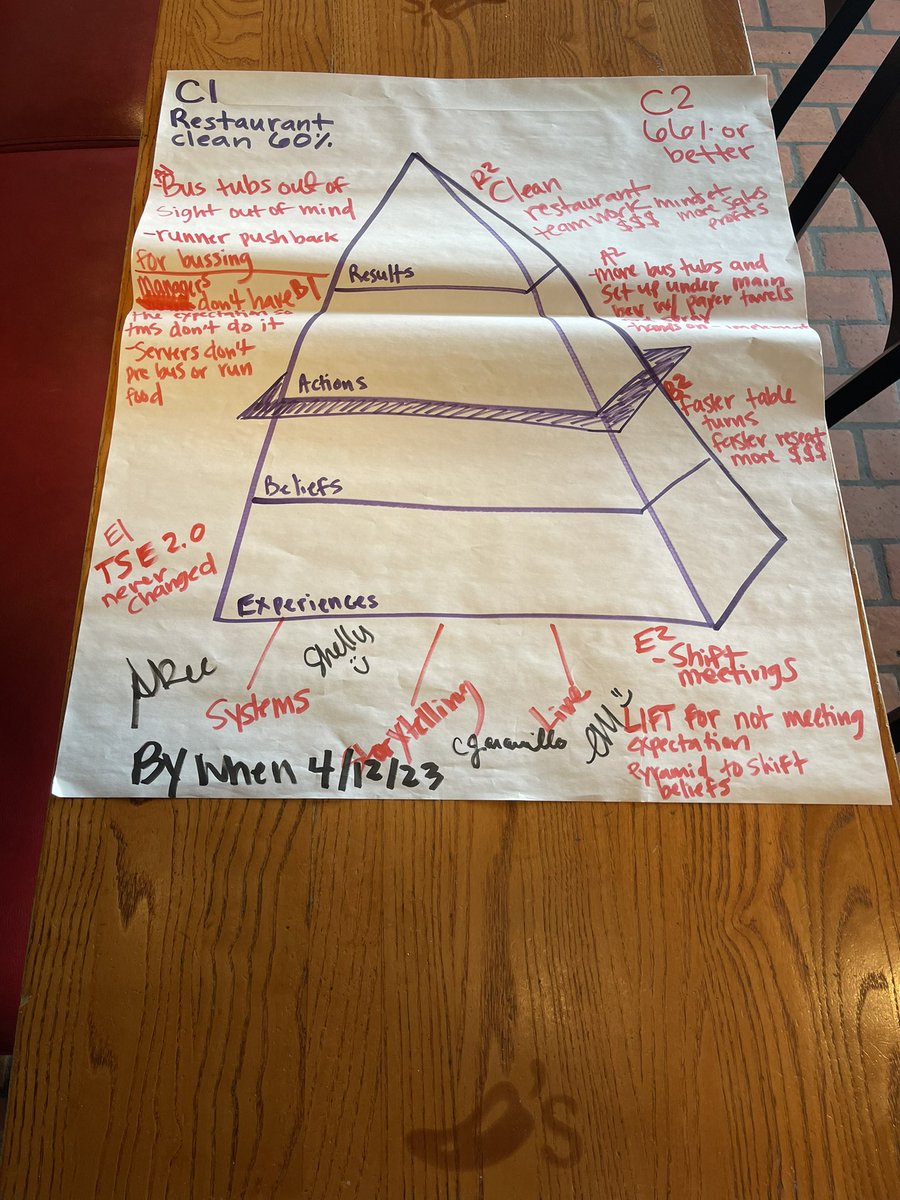 C1
Restaurant
clean 60%
C2
66% or
better
-Bus tubs out of
sight out of mind
-runner pushback
for bussing
managers
don't have
the expectation so
tms don't do it
-Servers don't
pre bus or run
food
B1
R2
Clean
restaurant
teamwork mindset
$$$ more sales
profits
A2
-more bus tubs and
set up under main
bev w/ paper towels
and spray
-hands on - implement
B2
faster table
turns
faster reseat
more $$$
Results
Actions
Beliefs
Experiences
E1
TSE 2.0
never
changed
Systems
Shelly
Storytelling
Live
E2
- Shift
meetings
LIFT for not meeting
expectation
Pyramid to shift
beliefs
By When 4/12/23
's